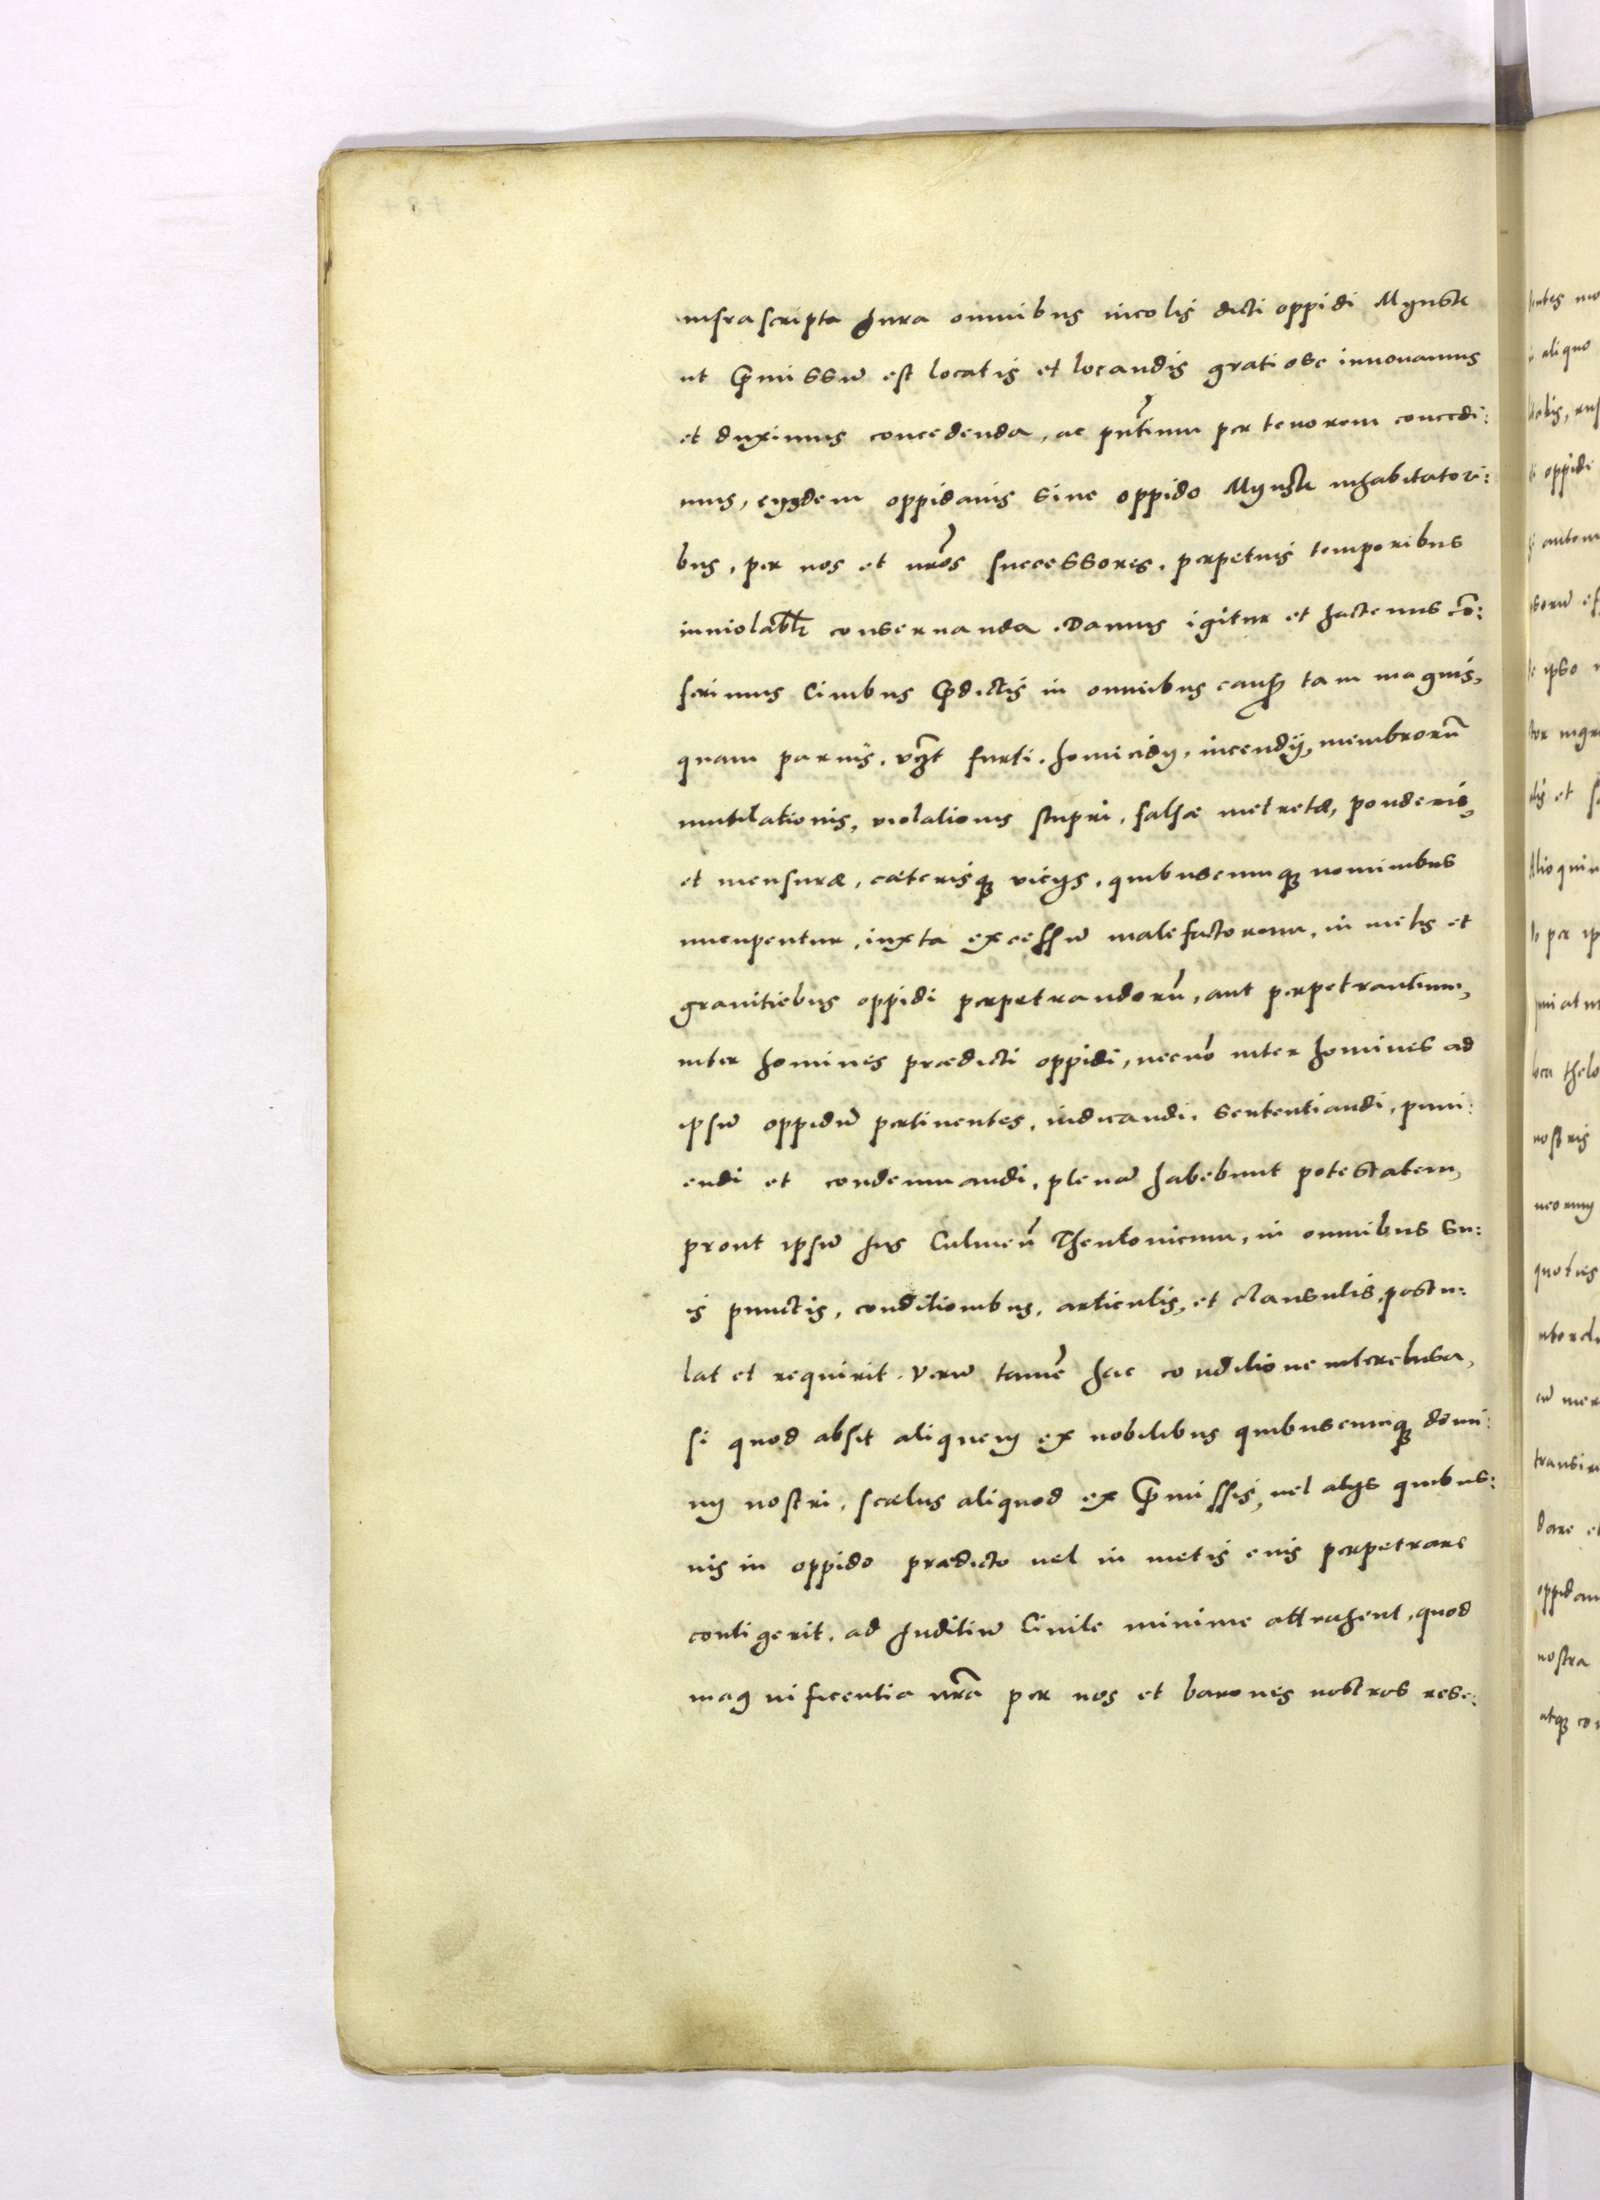 infrascripta Jura omnibus incolis dicti oppidi Mÿnsk
ut p̄missū est locatis et locandis gratiose innouamus
et duximus concedenda, ac pn̄tium per tenorem concedi:
mus, eysdem oppidanis siue oppido Mÿnsk inhabitatori:
bus, per nos et nr̄os successores, perpetuis temporibus
inuiolabl̄r conseruanda. Damus igitur et hactenus cō:
ferimus Ciuibus p̄dictis in omnibus causis tam magnis,
quam paruis, vz̄t furti, homicidÿ, incendÿ, membrorū
mutilationis, violationis stupri, falsæ metretæ, ponderis,
et mensuræ, cæterisq; vicÿs, quibuscumq; nominibus
nuncupentur, iuxta excessū malefactorum, in metis et
granitiebus oppidi perpetrandorū, aut perpetrantium,
inter homines prædicti oppidi, necnō inter homines ad
ipsū oppidū pertinentes, iudicandi, sententiandi, puni:
endi et condemnandi, plenā habebunt potestatem,
prout ipsū Jus Culmeñ Theutonicum, in omnibus su:
is punctis, conditionibus, articulis, et clausulis, postu:
lat et requirit. Verū tamē hac conditione interclusa,
si quod absit aliquem ex nobilibus quibuscunq; domi:
nÿ nostri, scælus aliquod ex p̄missis, vel alÿs quibus:
uis in oppido prædicto vel in metis eius perpetrare
contigerit, ad Juditiū Ciuile minime attrahent, quod
magnificentia nr̄a per nos et barones nostros rese: